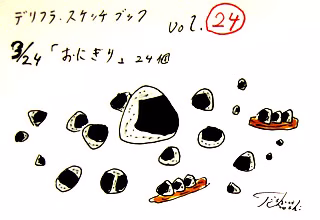 デリフラ・スケッチブック vol.24
3/24 「おにぎり」24個